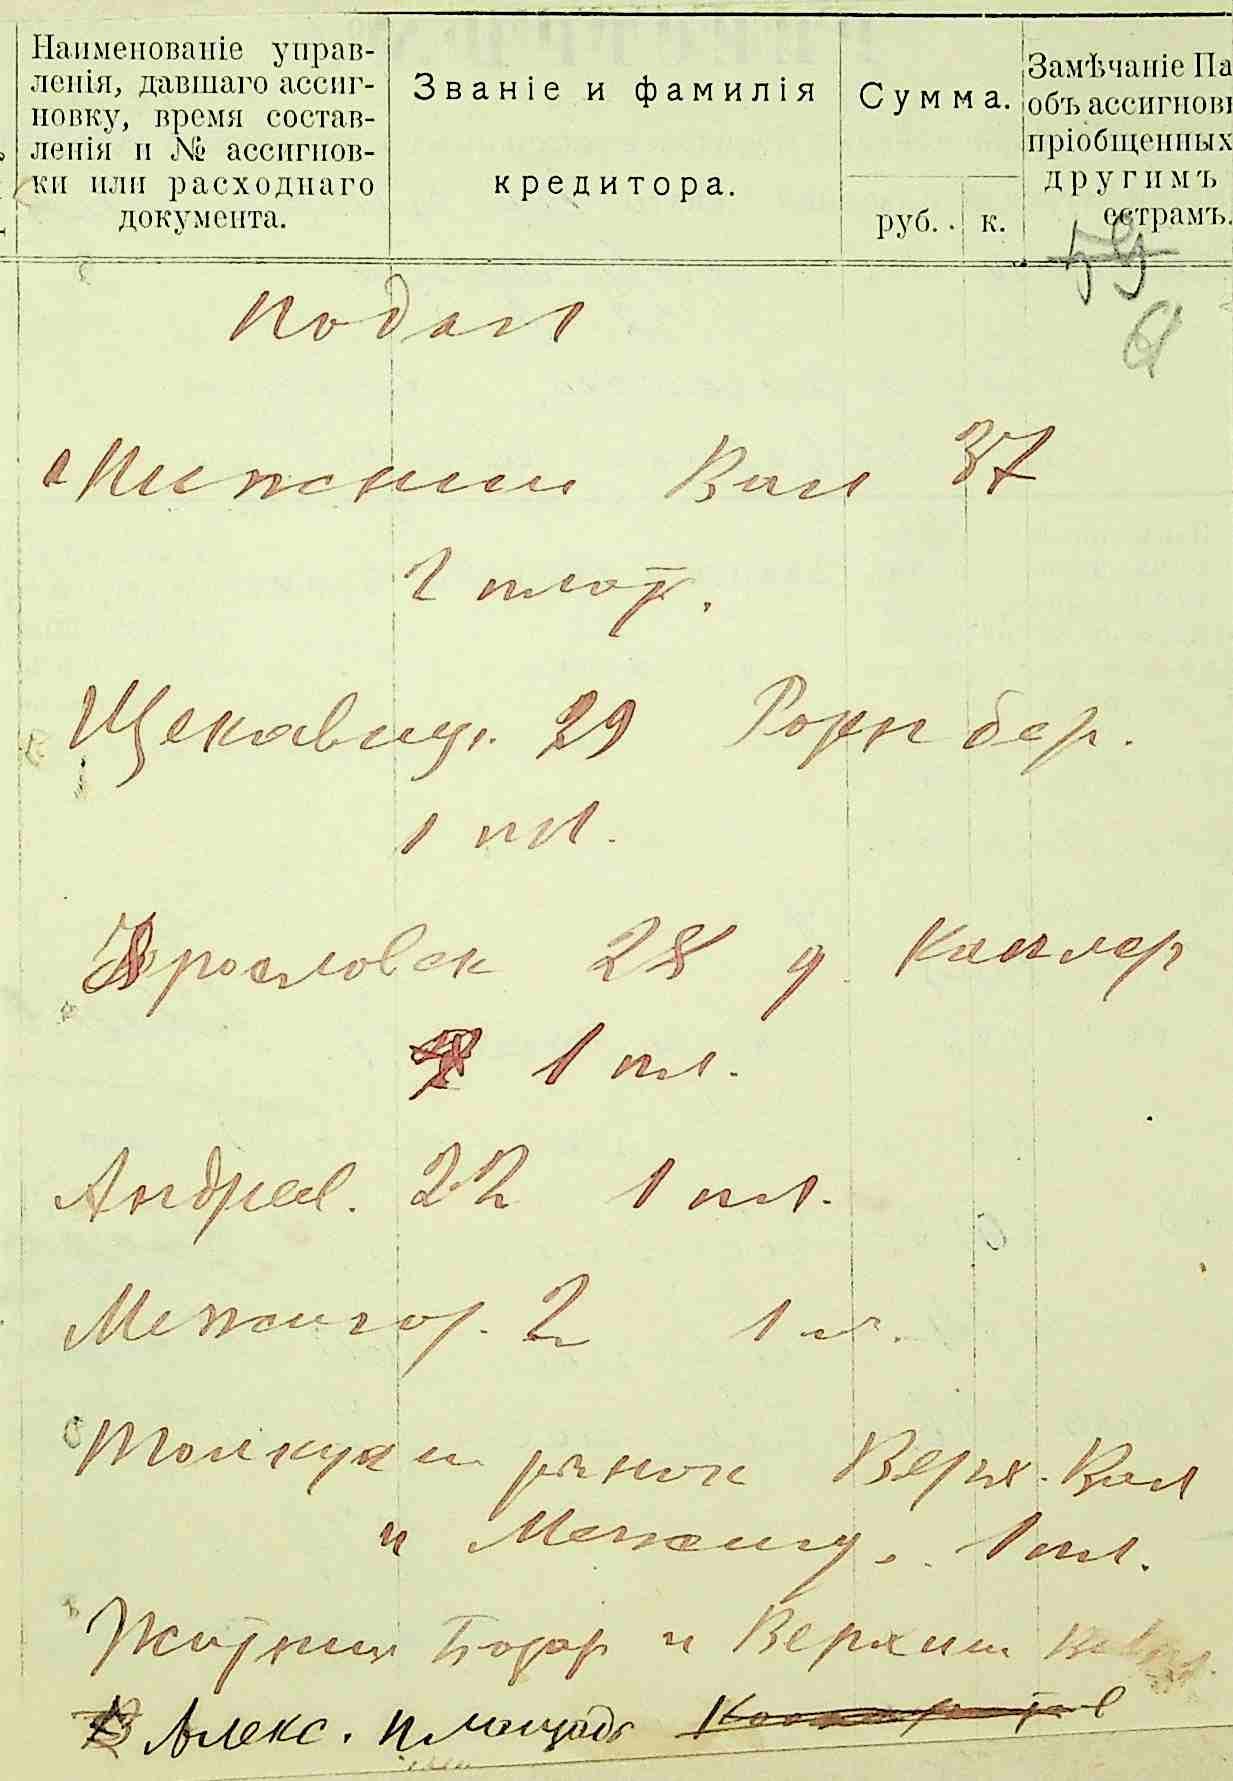 Наименованіе управ-
ленія, давшаго ассиг-
новку, время состав-
ленія и № ассигнов-
ки или расходнаго
документа.
Званіе и фамилія
кредитора.
Сумма.
руб. к.
Замѣчаніе Па
объ ассигнов
пріобщенных
другимъ
естрамъ.
Подол
Нижний Вал 37
2 плот.
Щекавиц. 29 Розенбер.
1 пл.
Ярославск 28 д. Каплер
1 пл.
Андреев. 22 1 пл.
Межигор. 2 1 п.
Толкуч и рынок Верх. Вал
и Межиг. 1 пл.
Житний Базар и Верхний Вал
Алекс. площадь